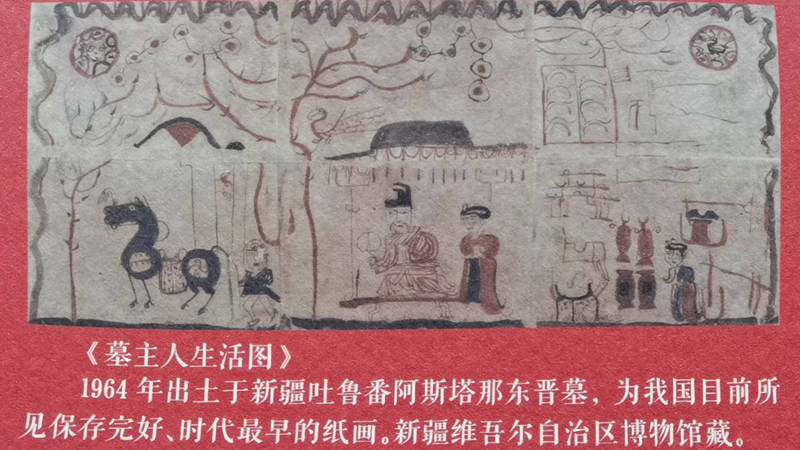 《墓主人生活图》
1964年出土于新疆吐鲁番阿斯塔那东晋墓，为我国目前所
见保存完好、时代最早的纸画。新疆维吾尔自治区博物馆藏。